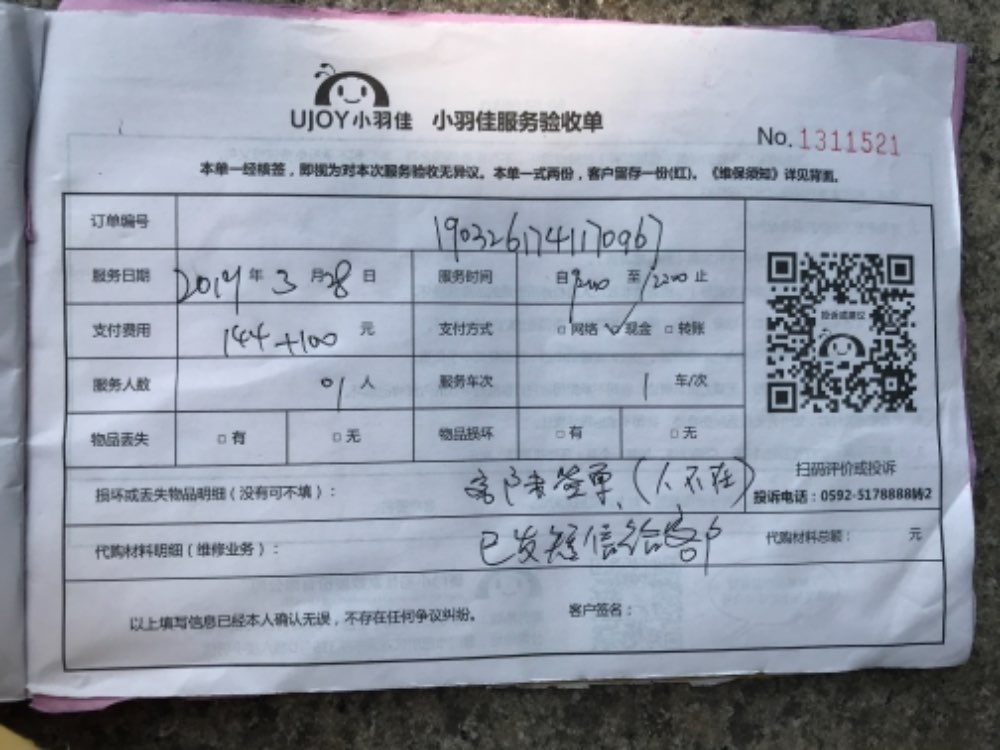 UJOY小羽佳 小羽佳服务验收单
No. 1311521
本单一经核签，即视为对本次服务验收无异议。本单一式两份，客户留存一份(红)。《维保须知》详见背面。
订单编号 190326174170967
服务日期 2019年3月28日 服务时间 自9200至1200止
支付费用 144+100 元 支付方式 □网络 ☑现金 □转账
服务人数 01人 服务车次 1 车/次
物品丢失 □有 □无 物品损坏 □有 □无
投诉或建议
扫码评价或投诉
投诉电话：0592-5178888转2
损坏或丢失物品明细（没有可不填）： 签单、(人不在)
代购材料明细（维修业务）： 已发短信给客户 代购材料总额： 元
以上填写信息已经本人确认无误，不存在任何争议纠纷。 客户签名：